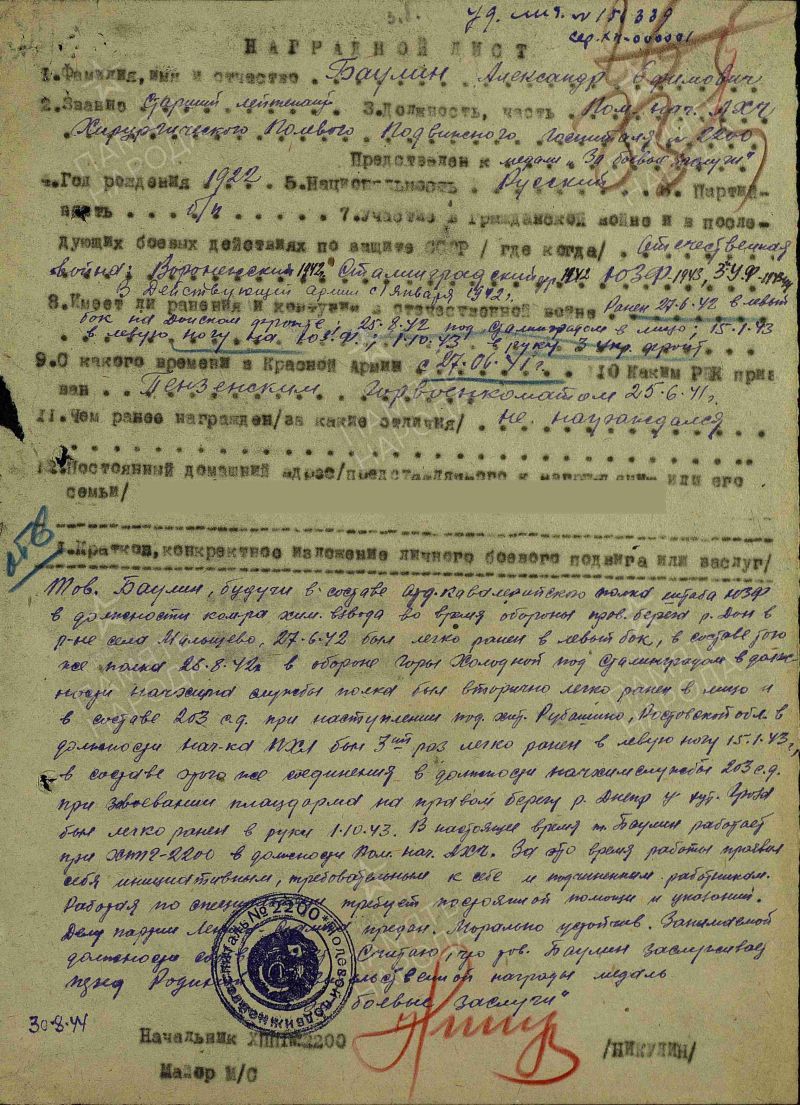 уд. лич. № 150339
сер. XII-000001
НАГРАДНОЙ ЛИСТ
1.Фамилия,имя и отчество Баулин Александр Ефимович
2.Звание старший лейтенант 3.Должность, часть Пом. нач. АХЧ
Хирургического Полевого Подвижного Госпиталя № 2200
Представлен к медали "За боевые заслуги"
4.Год рождения 1922 5.Национальность Русский 6. Партий-
ность б/п 7.Участие в гражданской войне и в после-
дующих боевых действиях по защите СССР / где когда/ Отечественная
война; Воронежский 1942, Сталинградский 1942 ЮЗФ 1943, 3 УФ
В Действующей армии с января 1942 г.
8.Имеет ли ранения и контузии в отечественной войне Ранен 27-6-42 в левый
бок на Донском фронте, 25-8-42 под Сталинградом в лицо; 15-1-43
в левую ногу на ЮЗФ; 1-10-43 в руку 3 Укр. фронт
9.С какого времени в Красной Армии с 27.06.41 г. 10 Каким РВК приз
ван Пензенским горвоенкоматом 25-6-41 г.
11.Чем ранее награжден/за какие отличия/ не награждался
12.Постоянный домашний адрес/представляемого к награждению или его
семьи/
1.Краткое,конкретное изложение личного боевого подвига или заслуг/
Тов. Баулин, будучи в составе отд. кавалерийского полка штаба ЮЗФ
в должности ком-ра хим. взвода во время обороны прав. берега р. Дон в
р-не села Малышево, 27-6-42 был легко ранен в левый бок, в составе того
же полка 25-8-42 в обороне горы Холодной под Сталинградом в долж-
ности начхима службы полка был вторично легко ранен в лицо и
в составе 203 с.д. при наступлении под хут. Рубашкино, Ростовской обл. в
должности нач-ка ПХЛ был 3ий раз легко ранен в левую ногу 15-1-43 г.,
в составе этого же соединения в должности начхимслужбы 203 с.д.
при завоевании плацдарма на правом берегу р. Днепр у хут.
был легко ранен в руку 1-10-43. В настоящее время т. Баулин работает
при ХППГ-2200 в должности Пом. нач. АХЧ. За это время работы проявил
себя инициативным, требовательным к себе и подчиненным работникам.
Работая по требует постоянной помощи и указаний.
Делу партии предан. Морально устойчив. Занимаемой
должности Считаю, что тов. Баулин заслуживает
пред Родиной награды медаль
боевые заслуги"
30-8-44
Начальник ХППГ№2200
/НИКУЛИН/
Майор М/С